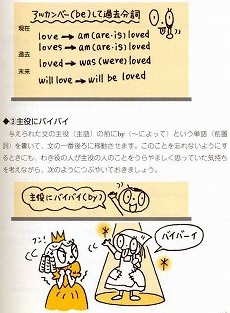 アルカンベー(be)して過去分詞
現在
love → am(are・is) loved
loves → am(are・is) loved
過去
loved → was(were) loved
未来
will love → will be loved
◆③主役にバイバイ
与えられた文の主役（主語）の前にby（〜によって）という単語（前置
詞）を書いて、文の一番後ろに移動させます。このことを忘れないようにす
るときにも、わき役の人が主役の人のことをうらやましく思っていた気持ち
を考えながら、次のようにつぶやいておきましょう。
主役にバイバイ(by)
フン!
バイバーイ